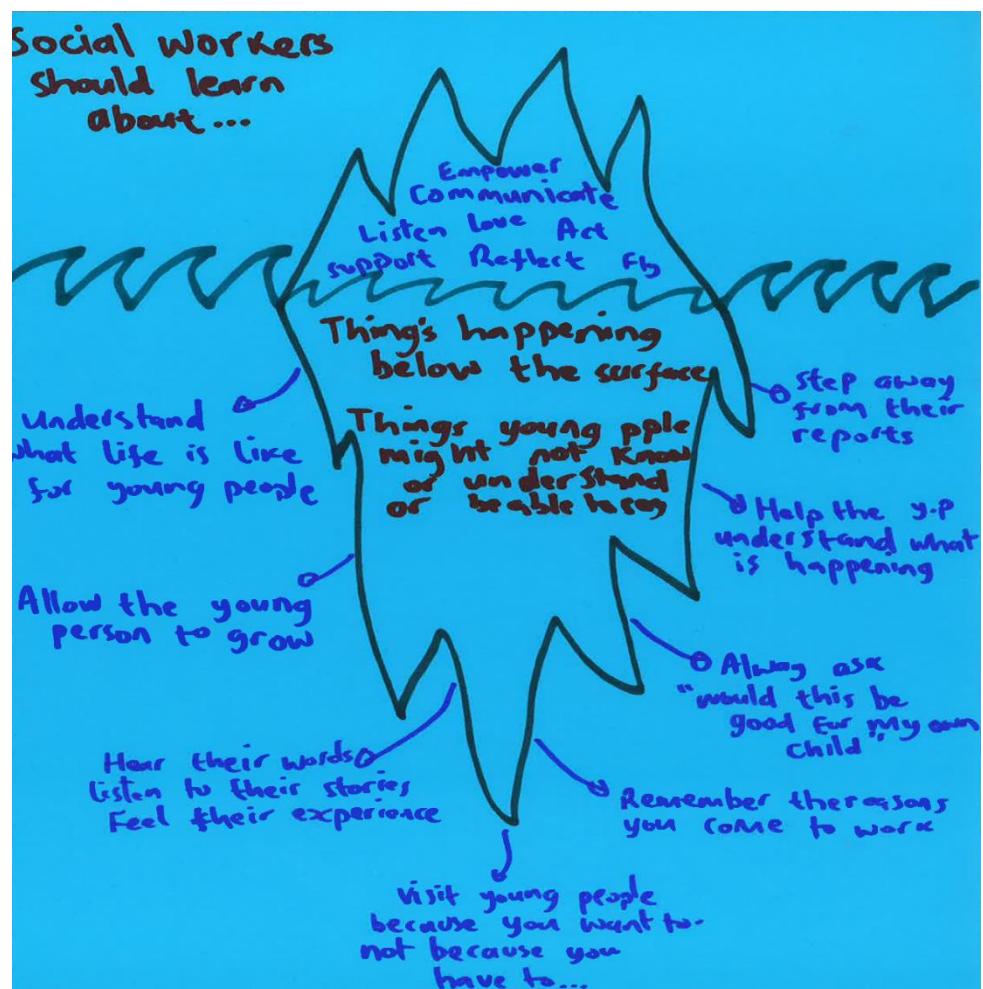 Social workers
should learn
about...
Empower
Communicate
Listen Love Act
support Reflect Fly
Thing's happening
below the surface
Things young pple
might not know
or understand
or be able to say
understand
what life is like
for young people
Allow the young
person to grow
Hear their words
listen to their stories
Feel their experience
Visit young people
because you want to-
not because you
have to...
Remember the reasons
you come to work
Alway ask
"would this be
good for my own
child"
Help the y.p
understand what
is happening
Step away
from their
reports